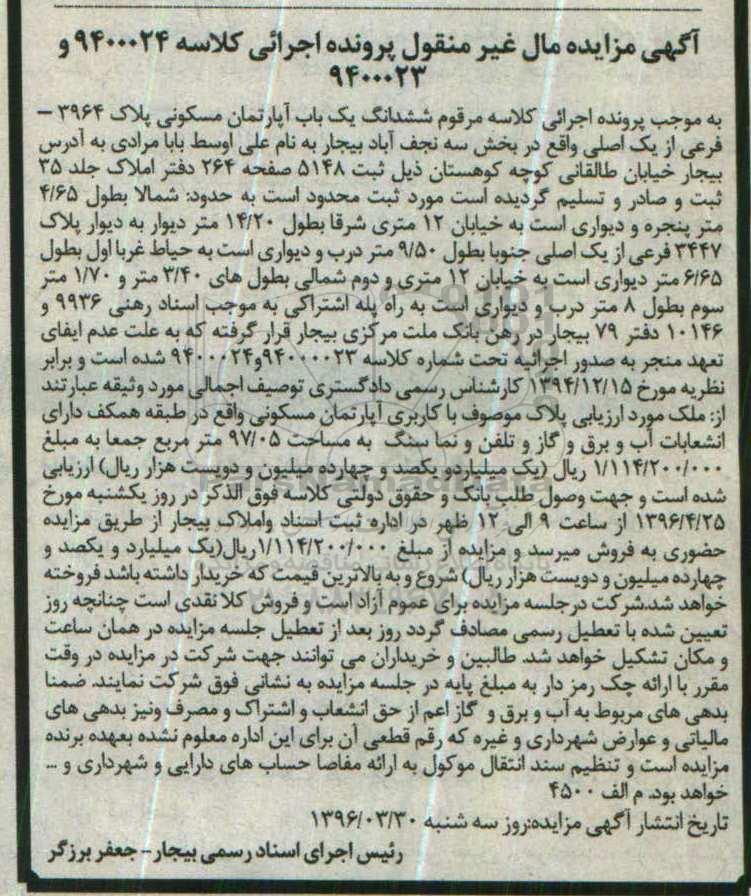 آگهی مزایده مال غیر منقول پرونده اجرائی کلاسه ۹۴۰۰۰۲۴ و
۹۴۰۰۰۲۳
به موجب پرونده اجرائی کلاسه مرقوم ششدانگ یک باب آپارتمان مسکونی پلاک ۳۹۶۴ –
فرعی از یک اصلی واقع در بخش سه نجف آباد بیجار به نام علی اوسط بابا مرادی به آدرس
بیجار خیابان طالقانی کوچه کوهستان ذیل ثبت ۵۱۴۸ صفحه ۲۶۴ دفتر املاک جلد ۳۵
ثبت و صادر و تسلیم گردیده است مورد ثبت محدود است به حدود: شمالا بطول ۴/۶۵
متر پنجره و دیواری است به خیابان ۱۲ متری شرقا بطول ۱۴/۲۰ متر دیوار به دیوار پلاک
۳۴۴۷ فرعی از یک اصلی جنوبا بطول ۹/۵۰ متر درب و دیواری است به حیاط غربا اول بطول
۶/۶۵ متر دیواری است به خیابان ۱۲ متری و دوم شمالی بطول های ۳/۴۰ متر و ۱/۷۰ متر
سوم بطول ۸ متر درب و دیواری است به راه پله اشتراکی به موجب اسناد رهنی ۹۹۳۶ و
۱۰۱۴۶ دفتر ۷۹ بیجار در رهن بانک ملت مرکزی بیجار قرار گرفته که به علت عدم ایفای
تعهد منجر به صدور اجرائیه تحت شماره کلاسه ۹۴۰۰۰۰۲۳و۹۴۰۰۰۲۴ شده است و برابر
نظریه مورخ ۱۳۹۴/۱۲/۱۵ کارشناس رسمی دادگستری توصیف اجمالی مورد وثیقه عبارتند
از: ملک مورد ارزیابی پلاک موصوف با کاربری آپارتمان مسکونی واقع در طبقه همکف دارای
انشعابات آب و برق و گاز و تلفن و نما سنگ به مساحت ۹۷/۰۵ متر مربع جمعا به مبلغ
۱/۱۱۴/۲۰۰/۰۰۰ ریال (یک میلیاردو یکصد و چهارده میلیون و دویست هزار ریال) ارزیابی
شده است و جهت وصول طلب بانک و حقوق دولتی کلاسه فوق الذکر در روز یکشنبه مورخ
۱۳۹۶/۴/۲۵ از ساعت ۹ الی ۱۲ ظهر در اداره ثبت اسناد واملاک بیجار از طریق مزایده
حضوری به فروش میرسد و مزایده از مبلغ ۱/۱۱۴/۲۰۰/۰۰۰ریال(یک میلیارد و یکصد و
چهارده میلیون و دویست هزار ریال) شروع و به بالاترین قیمت که خریدار داشته باشد فروخته
خواهد شد.شرکت درجلسه مزایده برای عموم آزاد است و فروش کلا نقدی است چنانچه روز
تعیین شده با تعطیل رسمی مصادف گردد روز بعد از تعطیل جلسه مزایده در همان ساعت
و مکان تشکیل خواهد شد. طالبین و خریداران می توانند جهت شرکت در مزایده در وقت
مقرر با ارائه چک رمز دار به مبلغ پایه در جلسه مزایده به نشانی فوق شرکت نمایند. ضمنا
بدهی های مربوط به آب و برق و گاز اعم از حق انشعاب و اشتراک و مصرف ونیز بدهی های
مالیاتی و عوارض شهرداری و غیره که رقم قطعی آن برای این اداره معلوم نشده بعهده برنده
مزایده است و تنظیم سند انتقال موکول به ارائه مفاصا حساب های دارایی و شهرداری و ...
خواهد بود. م الف ۴۵۰۰
تاریخ انتشار آگهی مزایده:روز سه شنبه ۱۳۹۶/۰۳/۳۰
رئیس اجرای اسناد رسمی بیجار- جعفر برزگر